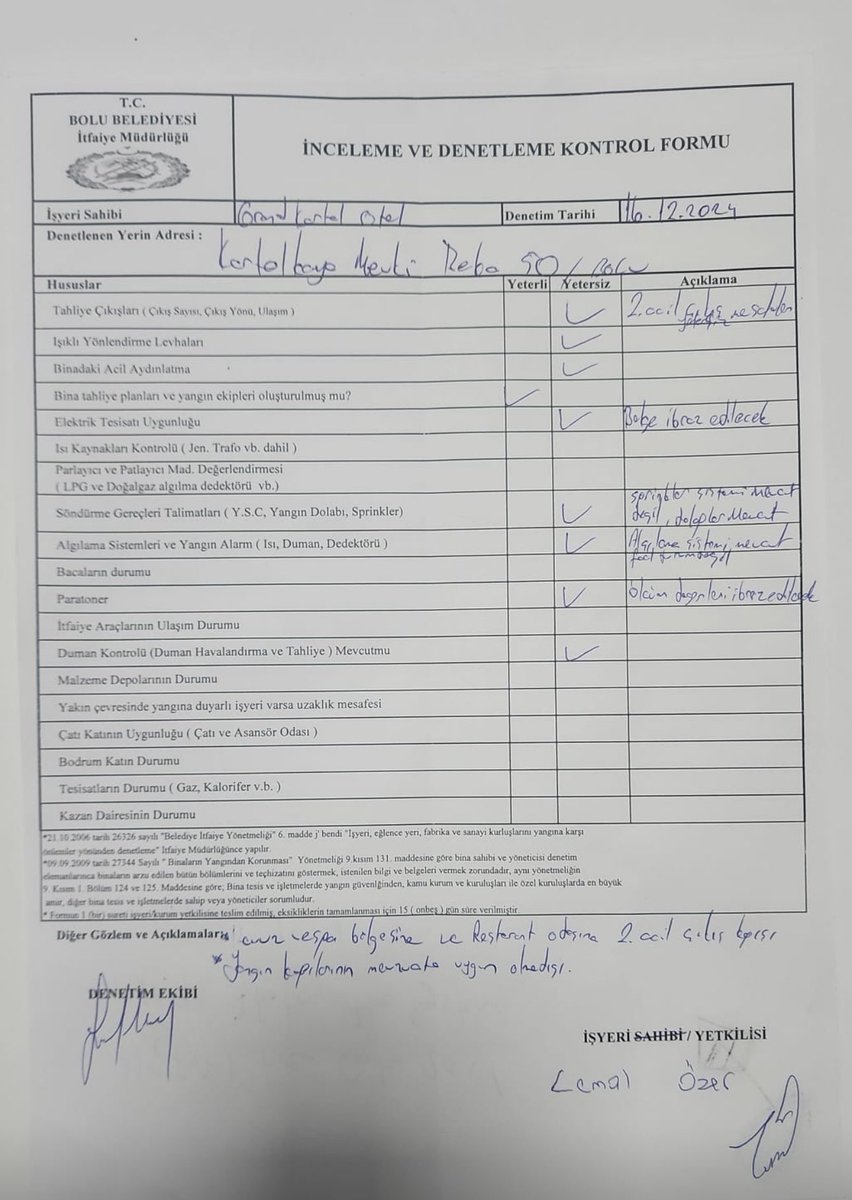 T.C.
BOLU BELEDİYESİ
İtfaiye Müdürlüğü
İNCELEME VE DENETLEME KONTROL FORMU
İşyeri Sahibi Grand Kartal Otel Denetim Tarihi 16.12.2024
Denetlenen Yerin Adresi : Kartalkaya Mevki 50 / Bolu
Hususlar Yeterli Yetersiz Açıklama
Tahliye Çıkışları ( Çıkış Sayısı, Çıkış Yönü, Ulaşım ) ✓ 2. acil çıkış
Işıklı Yönlendirme Levhaları ✓
Binadaki Acil Aydınlatma ✓
Bina tahliye planları ve yangın ekipleri oluşturulmuş mu? ✓
Elektrik Tesisatı Uygunluğu ✓ Belge ibraz edilecek
Isı Kaynakları Kontrolü ( Jen. Trafo vb. dahil )
Parlayıcı ve Patlayıcı Mad. Değerlendirmesi
( LPG ve Doğalgaz algılma dedektörü vb.)
Söndürme Gereçleri Talimatları ( Y.S.C, Yangın Dolabı, Sprinkler) ✓ sprinkler sistemi Mevcut
değil, dolaplar Mevcut
Algılama Sistemleri ve Yangın Alarm ( Isı, Duman, Dedektörü ) ✓ Algılama sistemi mevcut
Bacaların durumu
Paratoner ✓ ölçüm değerleri ibraz edilecek
İtfaiye Araçlarının Ulaşım Durumu
Duman Kontrolü (Duman Havalandırma ve Tahliye ) Mevcutmu ✓
Malzeme Depolarının Durumu
Yakın çevresinde yangına duyarlı işyeri varsa uzaklık mesafesi
Çatı Katının Uygunluğu ( Çatı ve Asansör Odası )
Bodrum Katın Durumu
Tesisatların Durumu ( Gaz, Kalorifer v.b. )
Kazan Dairesinin Durumu
*21.10.2006 tarih 26326 sayılı "Belediye İtfaiye Yönetmeliği" 6. madde j' bendi "İşyeri, eğlence yeri, fabrika ve sanayi kurluşlarını yangına karşı
önlemler yönünden denetleme" İtfaiye Müdürlüğünce yapılır.
*09.09.2009 tarih 27344 Sayılı " Binaların Yangından Korunması" Yönetmeliği 9.kısım 131. maddesine göre bina sahibi ve yöneticisi denetim
elemanlarınca binaların arzu edilen bütün bölümlerini ve teçhizatını göstermek, istenilen bilgi ve belgeleri vermek zorundadır, aynı yönetmeliğin
9. Kısım 1. Bölüm 124 ve 125. Maddesine göre; Bina tesis ve işletmelerde yangın güvenliğinden, kamu kurum ve kuruluşları ile özel kuruluşlarda en büyük
amir, diğer bina tesis ve işletmelerde sahip veya yöneticiler sorumludur.
* Formun 1 (bir) sureti işyeri/kurum yetkilisine teslim edilmiş, eksikliklerin tamamlanması için 15 ( onbeş ) gün süre verilmiştir.
Diğer Gözlem ve Açıklamalar: * bölgesine ve Restorant odasına 2. acil çıkış kapısı
* Yangın kapılarının mevzuata uygun olmadığı.
DENETİM EKİBİ
İŞYERİ SAHİBİ / YETKİLİSİ
Cemal Özer